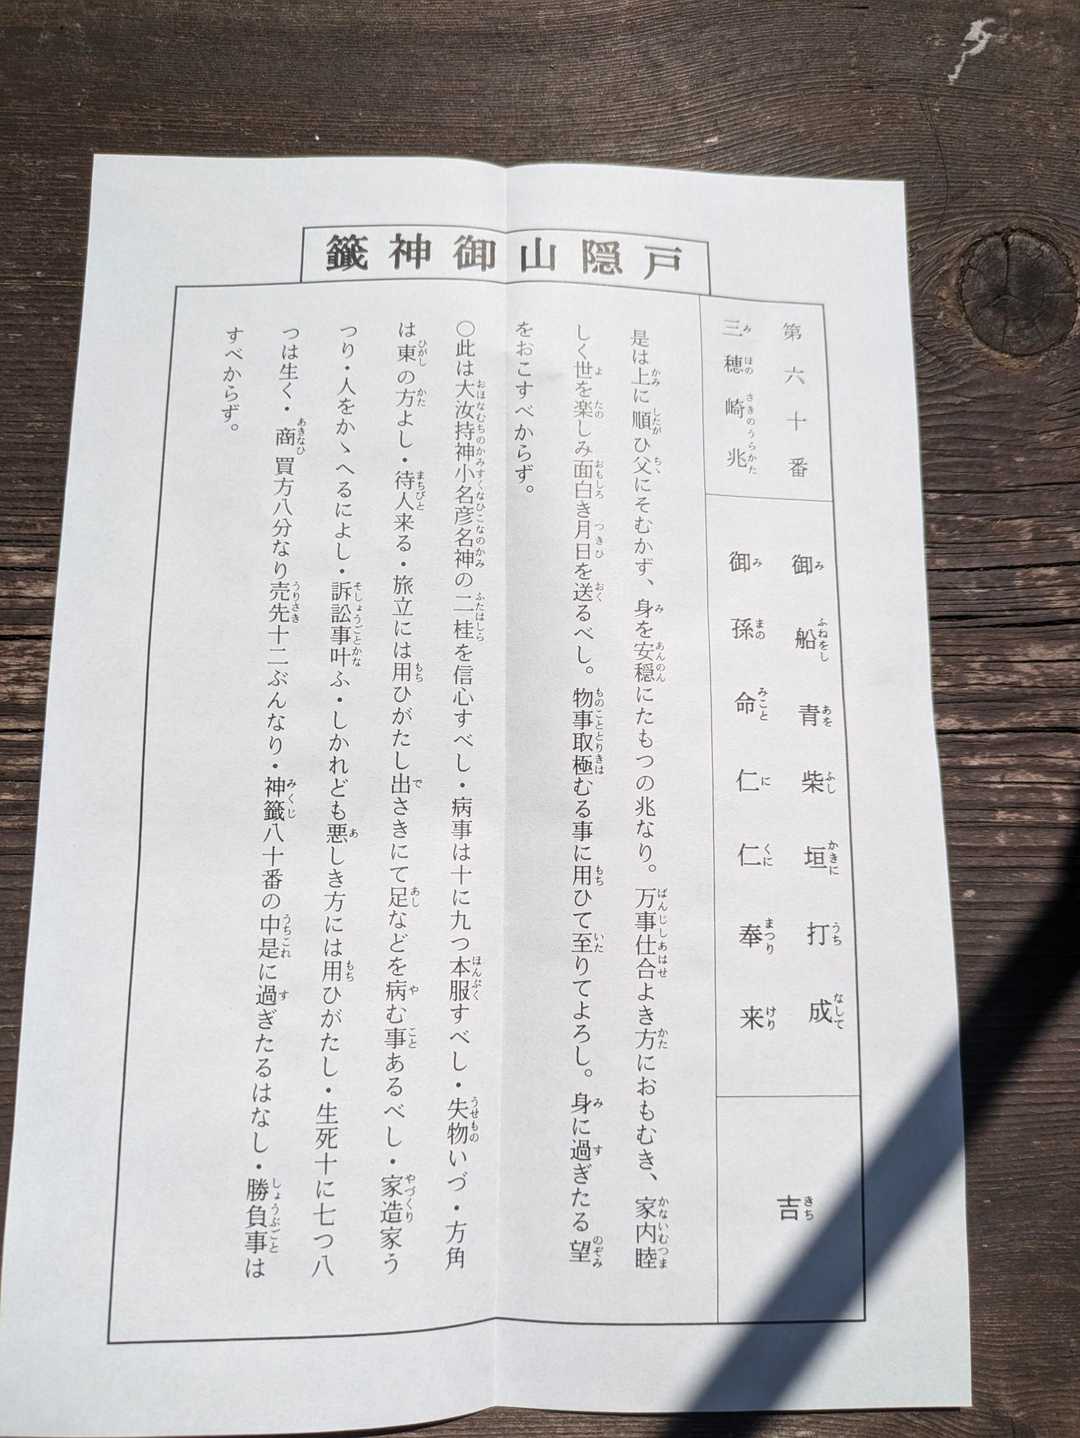 戸隠山御神籤
第六十番
三穂崎兆
みほのさきのうらかた
御船青柴垣打成
みふねをしあをふしかきにうちなして
御孫命仁仁奉来
みまのみことにくにまつりけり
吉
きち
是は上に順ひ父にそむかず、身を安穏にたもつの兆なり。万事仕合よき方におもむき、家内睦
しく世を楽しみ面白き月日を送るべし。物事取極むる事に用ひて至りてよろし。身に過ぎたる望
をおこすべからず。
〇此は大汝持神小名彦名神の二桂を信心すべし・病事は十に九つ本服すべし・失物いづ・方角
は東の方よし・待人来る・旅立には用ひがたし出さきにて足などを病む事あるべし・家造家う
つり・人をかゝへるによし・訴訟事叶ふ・しかれども悪しき方には用ひがたし・生死十に七つ八
つは生く・商買方八分なり売先十二ぶんなり・神籤八十番の中是に過ぎたるはなし・勝負事は
すべからず。